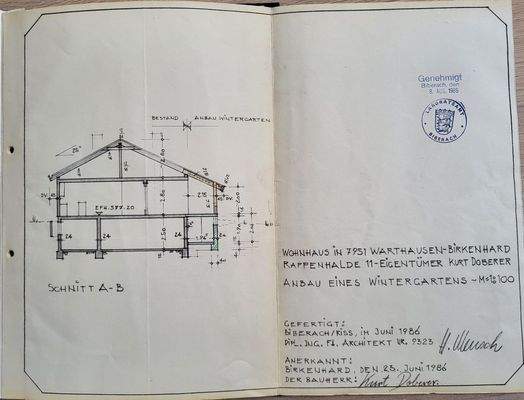 BESTAND
ANBAU WINTERGARTEN
25°
2.80
EFH. 577.20
2.80
2.50
24
24
24
SCHNITT A-B
Genehmigt
Biberach, den
LANDRATSAMT
BIBERACH
WOHNHAUS IN 7951 WARTHAUSEN-BIRKENHARD
RAPPENHALDE 11-EIGENTÜMER KURT DOBERER
ANBAU EINES WINTERGARTENS - M=1:100
GEFERTIGT:
BIBERACH/RISS, IM JUNI 1986
DIPL. ING. FH. ARCHITEKT NR. 9323
ANERKANNT:
BIRKENHARD, DEN 23. JUNI 1986
DER BAUHERR: Kurt Doberer